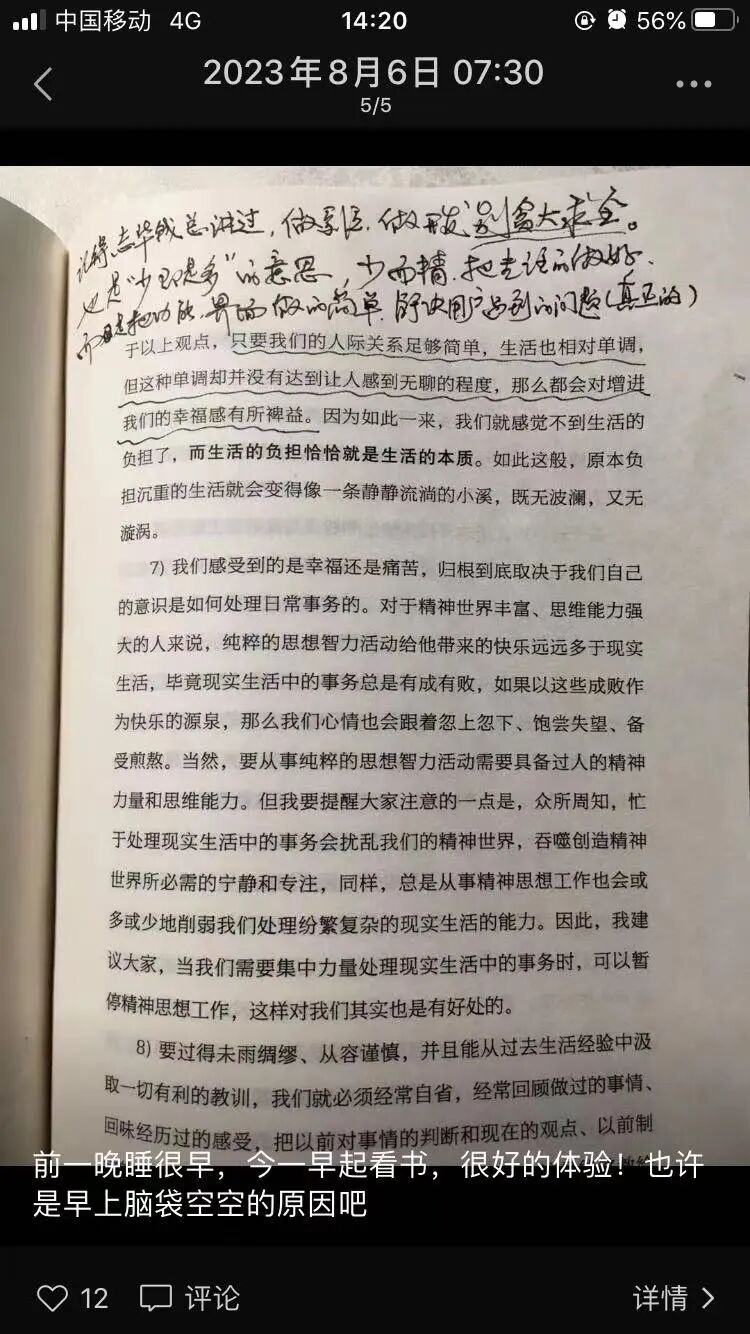 中国移动 4G 14:20 56%
2023年8月6日 07:30
5/5
记得志华钱总讲过，做系统，做开发，别贪大求全。
也是"少即是多"的意思，少而精，把该做的做好，
而且是把功能、界面做的简单，解决用户遇到的问题(真正的)
于以上观点，只要我们的人际关系足够简单，生活也相对单调，
但这种单调却并没有达到让人感到无聊的程度，那么都会对增进
我们的幸福感有所裨益。因为如此一来，我们就感觉不到生活的
负担了，而生活的负担恰恰就是生活的本质。如此这般，原本负
担沉重的生活就会变得像一条静静流淌的小溪，既无波澜，又无
漩涡。
7) 我们感受到的是幸福还是痛苦，归根到底取决于我们自己
的意识是如何处理日常事务的。对于精神世界丰富、思维能力强
大的人来说，纯粹的思想智力活动给他带来的快乐远远多于现实
生活，毕竟现实生活中的事务总是有成有败，如果以这些成败作
为快乐的源泉，那么我们心情也会跟着忽上忽下、饱尝失望、备
受煎熬。当然，要从事纯粹的思想智力活动需要具备过人的精神
力量和思维能力。但我要提醒大家注意的一点是，众所周知，忙
于处理现实生活中的事务会扰乱我们的精神世界，吞噬创造精神
世界所必需的宁静和专注，同样，总是从事精神思想工作也会或
多或少地削弱我们处理纷繁复杂的现实生活的能力。因此，我建
议大家，当我们需要集中力量处理现实生活中的事务时，可以暂
停精神思想工作，这样对我们其实也是有好处的。
8) 要过得未雨绸缪、从容谨慎，并且能从过去生活经验中汲
取一切有利的教训，我们就必须经常自省，经常回顾做过的事情、
回味经历过的感受，把以前对事情的判断和现在的观点、以前制
前一晚睡很早，今一早起看书，很好的体验！也许
是早上脑袋空空的原因吧
12 评论 详情